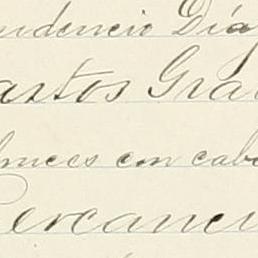 udencio Día
astos Gra
lmces con cab
ercanc